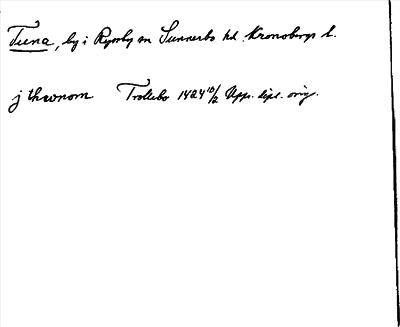 Tuna, by i Ryssby sn Sunnerbo hd. Kronobergs l.
j thwnom Trotebo 1424 10/2 Upps. dipl. orig.